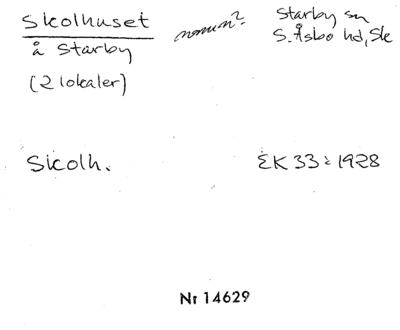 Skolhuset
å Starby
(2 lokaler)
nomen?
Starby sn
S. Åsbo hd, Sk
Skolh.
EK 33: 1928
Nr 14629